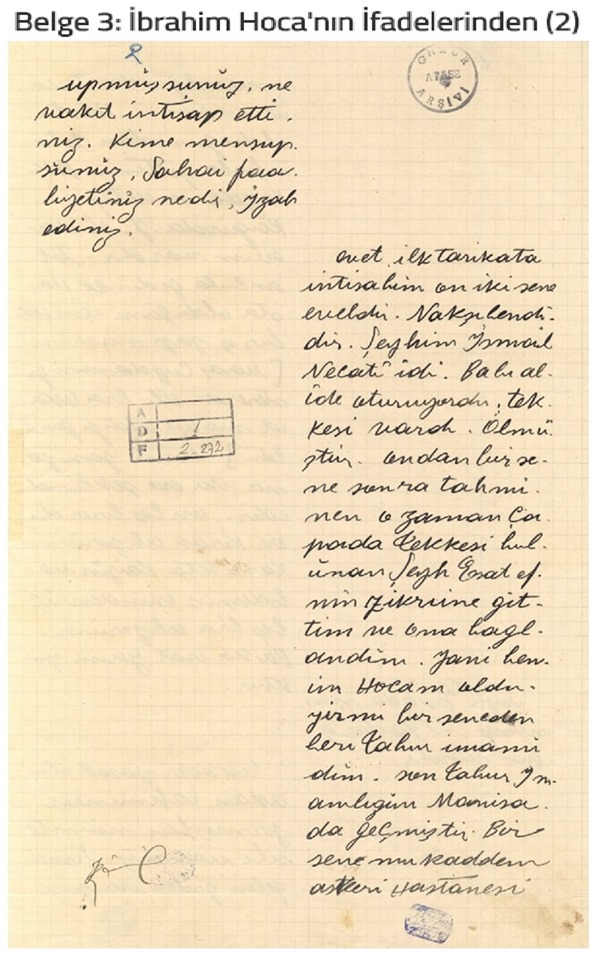 Belge 3: İbrahim Hoca'nın İfadelerinden (2)
2
upmüşsunuz, ne
vakıt intisap etti.
niz. Kime mensup.
sunuz, Sahai faa.
liyetiniz nedir, İzah
ediniz.
GNKUR
ATASE
ARŞİVİ
evet ilk tarikata
intisabım on iki sene
eveldir. Nakşıbendi.
dir. Şeyhim İsmail
Necati idi. Babı al.
ide oturuyordu, tek.
kesi vardı. Ölmü.
ştür. ondan bir se.
ne sonra tahmi.
nen o zaman Ça.
pada Tekkesi bul.
unan Şeyh Esat ef.
nin Zikrine git.
tim ve ona bagl.
andım. Yani ben.
im Hocam oldu.
yirmi bir seneden
beri Tabur imamı
dım. son Tabur İm.
amlığım Manisa.
da geçmiştir. Bir
sene mukaddem
askeri Hastanesi
A
D 1
F 2-272